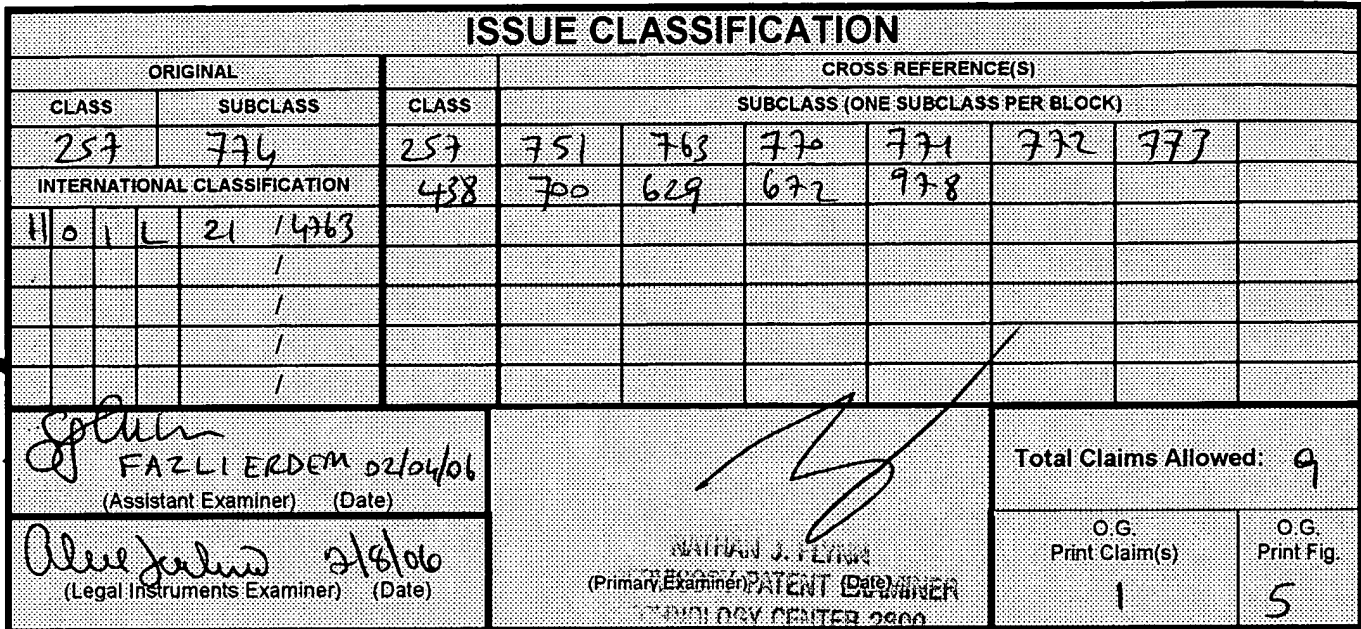 ISSUE CLASSIFICATION
ORIGINAL
CROSS REFERENCE(S)
CLASS SUBCLASS CLASS SUBCLASS (ONE SUBCLASS PER BLOCK)
257 774 257 751 763 770 771 772 773
INTERNATIONAL CLASSIFICATION 438 700 629 672 978
H 0 1 L 21 /4763
/
/
/
/
FAZLI ERDEM 02/04/06
(Assistant Examiner) (Date)
Total Claims Allowed: 9
2/8/06
(Legal Instruments Examiner) (Date)
NATHAN J. FLYNN
(Primary Examiner) (Date)
PATENT EXAMINER
CENTER 2800
O.G.
Print Claim(s)
1
O.G.
Print Fig.
5